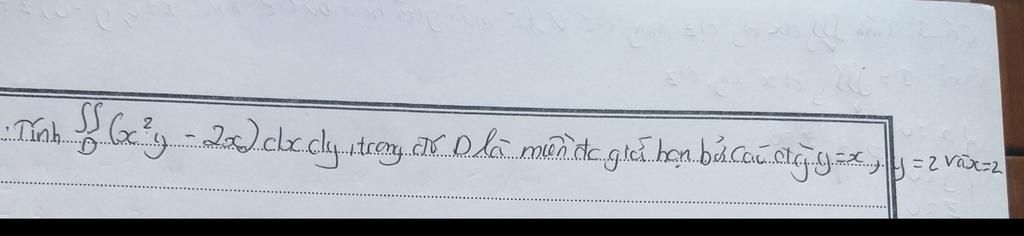 . Tính ∬_D (x²y - 2x) dx dy, trong đó D là miền đc giới hạn bởi các đtg y=x, y=2 và x=2